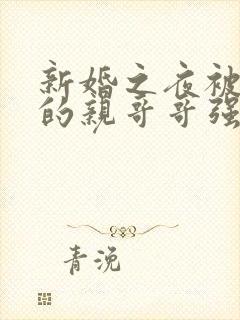 新婚之夜被
的親哥哥强
青浼